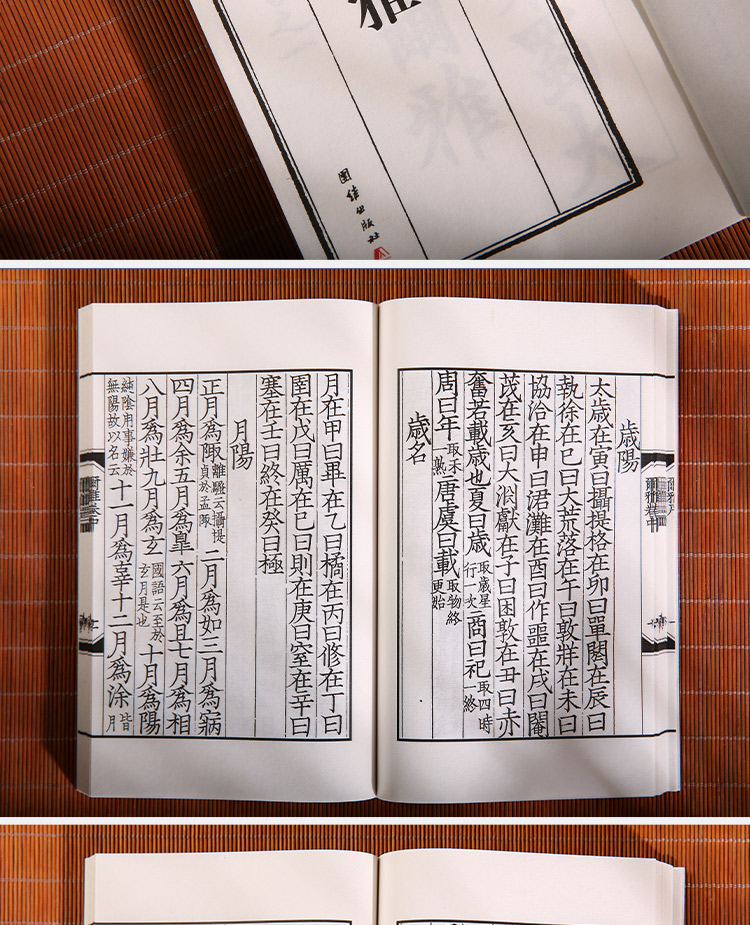 雅
團结出版社
歳陽
太歳在寅曰攝提格在卯曰單閼在辰曰
執徐在巳曰大荒落在午曰敦牂在未曰
協洽在申曰涒灘在酉曰作噩在戌曰閹
茂在亥曰大渕獻在子曰困敦在丑曰赤
奮若載歳也夏曰歳取歳星行一次商曰祀取四時一終
周曰年取禾一熟唐虞曰載取物終更貽
歳名
月在甲曰畢在乙曰橘在丙曰修在丁曰
圉在戊曰厲在已曰則在庚曰窒在辛曰
塞在壬曰終在癸曰極
月陽
正月爲陬離騷云攝提貞於孟陬二月爲如三月爲寎
四月爲余五月爲皐六月爲且七月爲相
八月爲壯九月爲玄國語云至於玄月是也十月爲陽
純陰用事嫌於無陽故以名云十一月爲辜十二月爲涂皆月
爾雅卷中